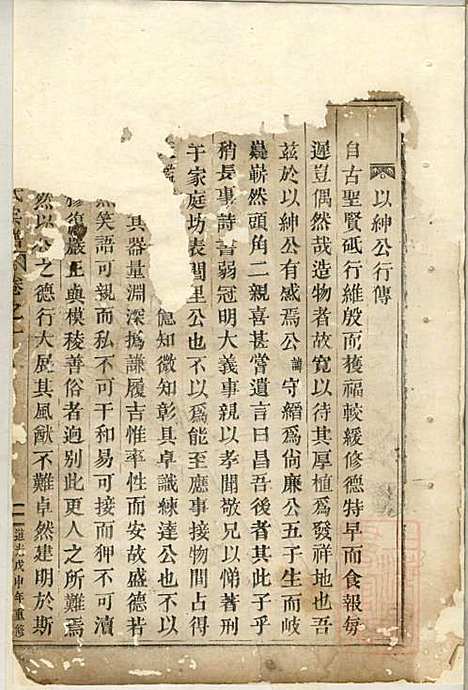 以紳公行傳
自古聖賢砥行維殷而獲福較緩修德特早而食報每
遲豈偶然哉造物者故寬以待其厚植爲發祥地也吾
茲於以紳公有感焉公諱守縉爲尙廉公五子生而岐
嶷嶄然頭角二親喜甚嘗遺言曰昌吾後者其此子乎
稍長事詩書弱冠明大義事親以孝聞敬兄以悌著刑
于家庭坊表閭里公也不以爲能至應事接物間占得
知微知彰具卓識練達公也不以
其器量淵深撝謙履吉惟率性而安故盛德若
笑語可親而私不可干和易可接而狎不可瀆
修復嚴正與模稜善俗者逈別此更人之所難焉
然以公之德行大展其風猷不難卓然建明於斯
氏宗譜 卷之一
道光戊申年重修